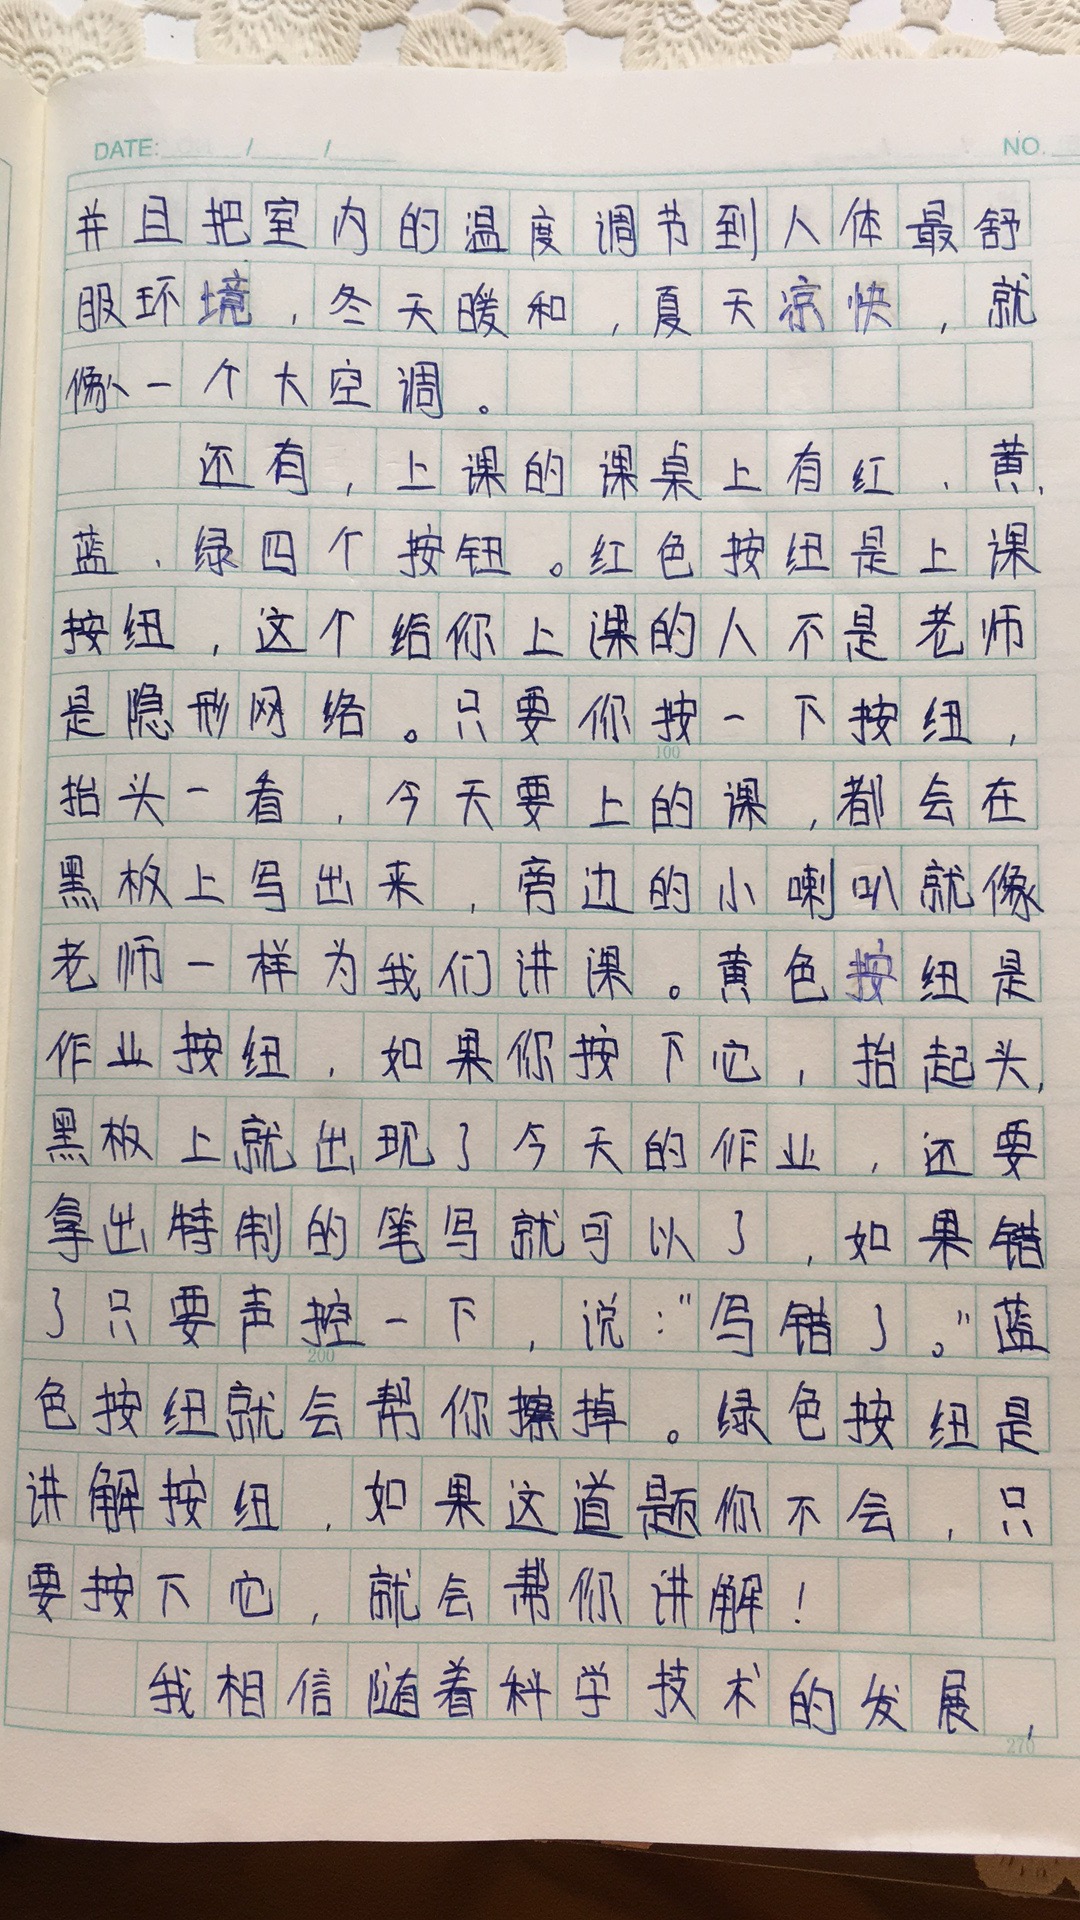 DATE: / / NO.
并且把室内的温度调节到人体最舒
服环境，冬天暖和，夏天凉快，就
像一个大空调。
还有，上课的课桌上有红、黄、
蓝、绿四个按钮。红色按纽是上课
按纽，这个给你上课的人不是老师
是隐形网络。只要你按一下按纽，
100
抬头一看，今天要上的课，都会在
黑板上写出来，旁边的小喇叭就像
老师一样为我们讲课。黄色按纽是
作业按纽，如果你按下它，抬起头，
黑板上就出现了今天的作业，还要
拿出特制的笔写就可以了，如果错
了只要声控一下，说："写错了。"蓝
200
色按纽就会帮你擦掉。绿色按纽是
讲解按纽，如果这道题你不会，只
要按下它，就会帮你讲解！
我相信随着科学技术的发展，
270